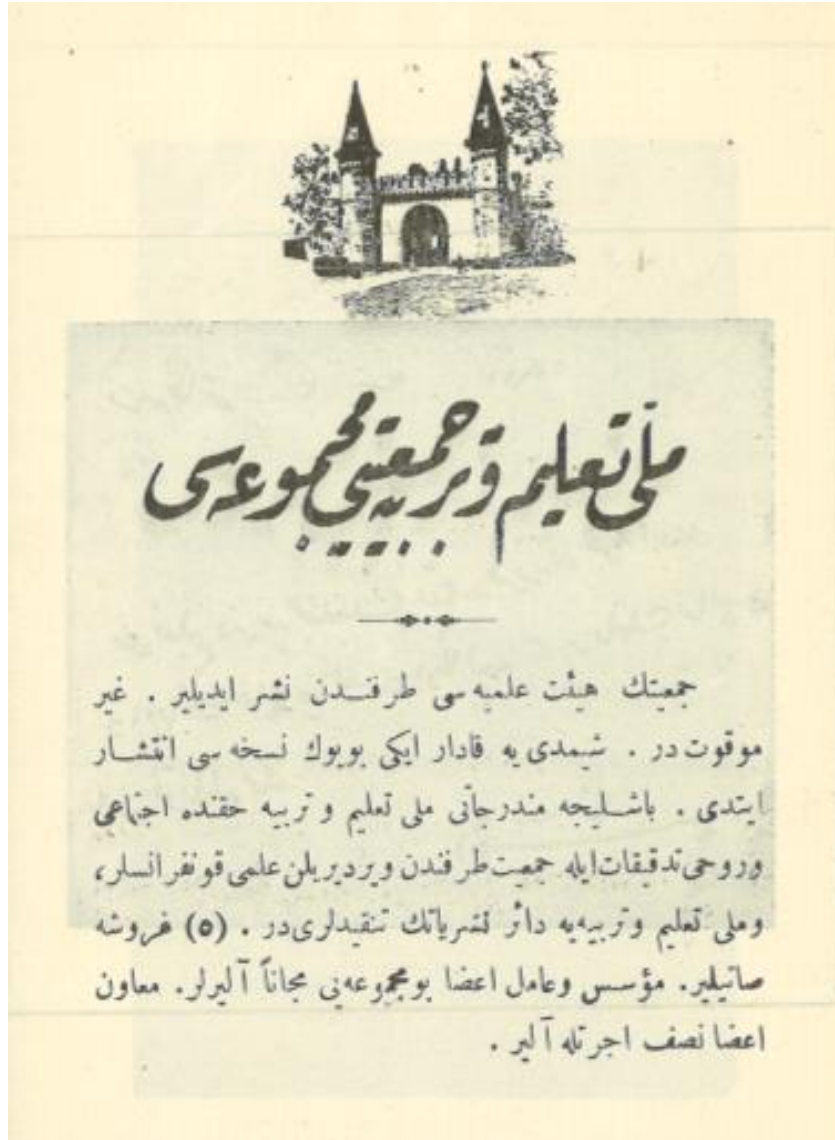 ملّی تعلیم و تربیه جمعیتی مجموعه‌سی
جمعیتك هیئت علمیه سی طرفندن نشر ایدیلیر . غیر
موقوت در . شیمدی یه قادار ایکی بویوك نسخه سی انتشار
ایتدی . باشلیجه مندرجاتی ملی تعلیم و تربیه حقنده اجتماعی
وروحی تدقیقات ایله جمعیت طرفندن ویردیریلن علمی قونفرانسلر،
وملی تعلیم وتربیه‌یه دائر نشریاتك تنقیدلری در . (٥) غروشه
صاتیلیر. مؤسس وعامل اعضا بو مجموعه‌یی مجاناً آلیرلر. معاون
اعضا نصف اجرتله آلیر .